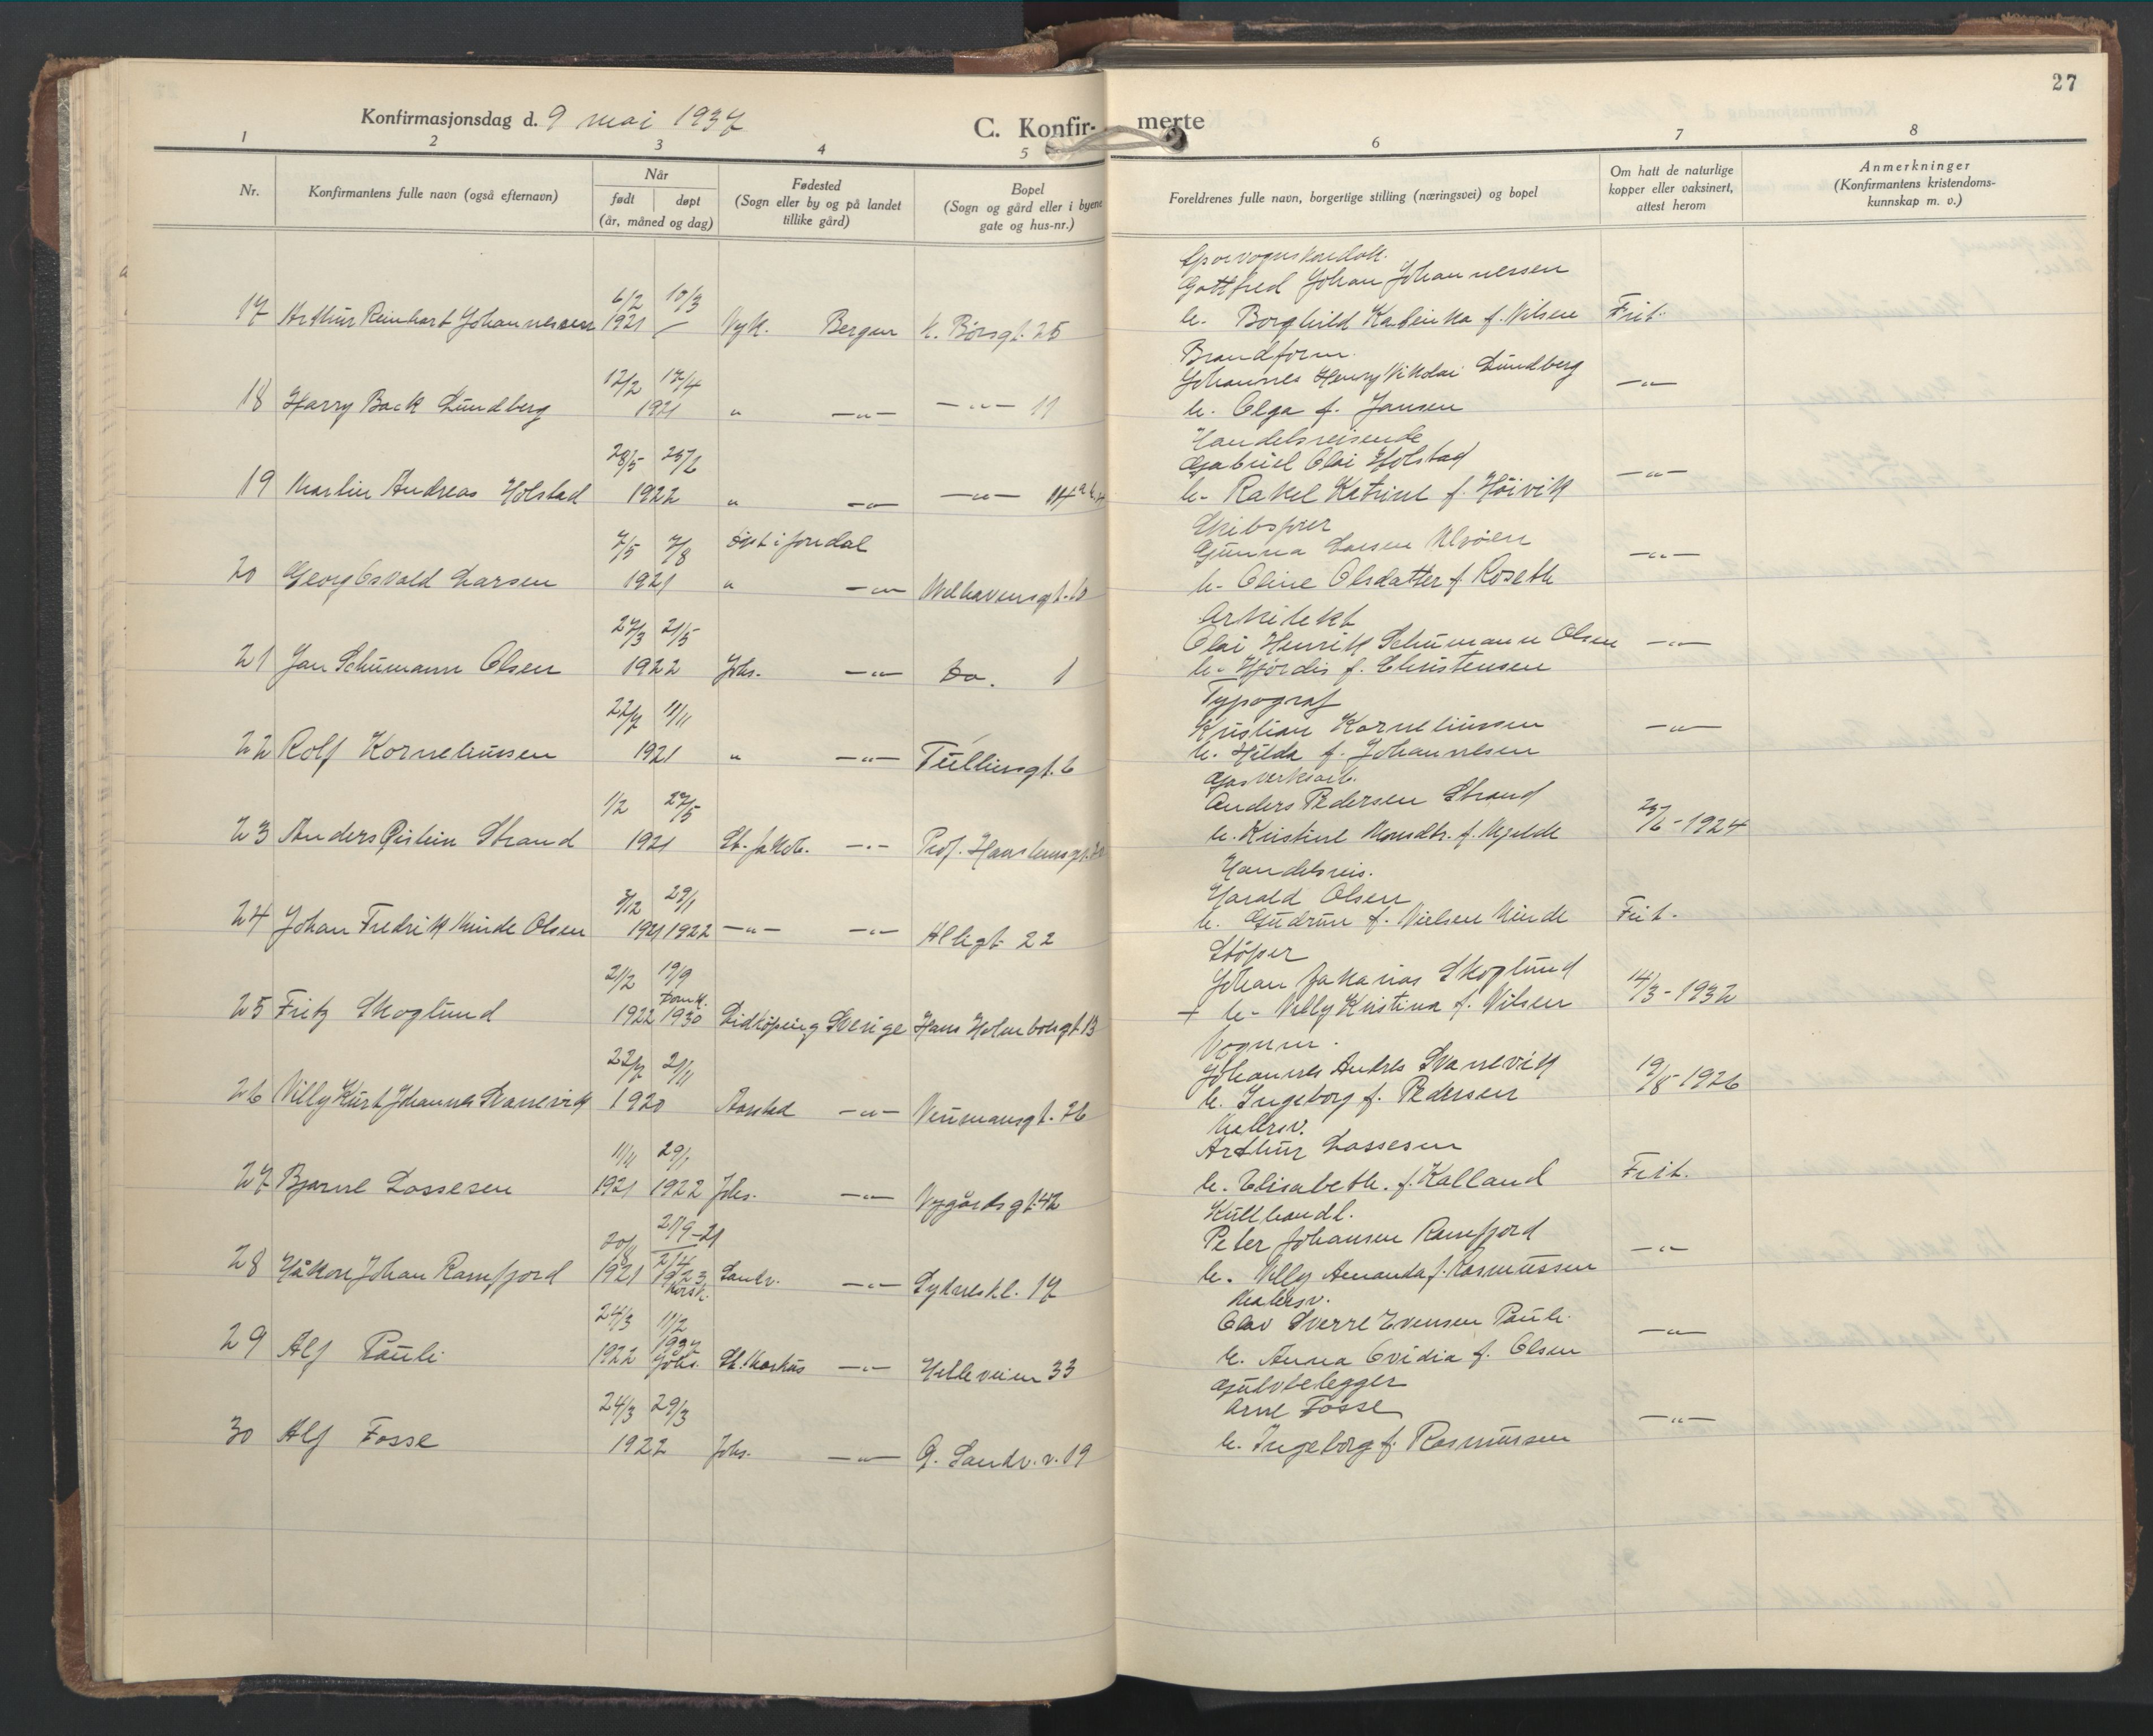 27
Konfirmasjonsdag d. 9 mai 1937
C. Konfir- merte
1 2 3 4 5 6 7 8
Nr.
Konfirmantens fulle navn (også efternavn)
Når
født døpt
(år, måned og dag)
Fødested
(Sogn eller by og på landet
tillike gård)
Bopel
(Sogn og gård eller i byene
gate og hus-nr.)
Foreldrenes fulle navn, borgerlige stilling (næringsvei) og bopel
Om hatt de naturlige
kopper eller vaksinert,
attest herom
Anmerkninger
(Konfirmantens kristendoms-
kunnskap m. v.)
Sporvognskondukt.
6/2 10/3 Gottfred Johan Johannessen
17 Arthur Reinhart Johannessen 1921 — Nyk. Bergen K. Børsgt. 25 h. Borghild Katinka f. Nilsen Frit.
Brandform.
12/2 17/4 Johannes Henry Nikolai Lundberg —"—
18 Harry Back Lundberg 1921 " —"— —"— 11 h. Olga f. Jansen
Handelsreisende
28/5 25/6 Gabriel Olai Holstad —"—
19 Martin Andreas Holstad 1922 " —"— —"— h. Rakel Katrine f. Höivik
Skibsfører
7/5 7/8 døpt i Jondal Gunna Larsen Alvöen —"—
20 Georg Osvald Larsen 1921 " —"— Welhavensgt. h. Oline Olsdatter f. Roseth
Arkitekt
27/3 21/5 Olai Henrik Schumann Olsen —"—
21 Jan Schumann Olsen 1922 Johs. —"— Do. 1 h. Hjördis f. Christensen
Typograf
22/7 11/11 Kristian Korneliussen —"—
22 Rolf Korneliussen 1921 " —"— Tullinsgt. 6 h. Hilda f. Johannesen
Gasverksarb.
1/2 27/5 Anders Pedersen Strand
23 Anders Öistein Strand 1921 St. Jakob. —"— Prof. Hansteensgt. h. Kristine Monsdtr. f. Mjelde 1924
Handelsreis.
3/12 29/1 Harald Olsen
24 Johan Fredrik Minde Olsen 1921 1922 —"— —"— Alligt. 22 h. Gudrun f. Nielsen Minde Frit.
Støper
21/2 19/9 Johan Zakarias Skoglund
Domk.
25 Fritz Skoglund 1922 1930 Lidköping Sverige Hans Holmboesgt. 13 + h. Nelly Kristina f. Nilsen 14/3-1932
Vognm.
22/7 21/11 Johannes Andres Svanevik
26 Villy Kurt Johannes Svanevik 1920 Aarstad —"— Neumansgt. 26 h. Ingeborg f. Pedersen 19/8-1926
Malersv.
11/11 29/1 Arthur Lassesen
27 Bjarne Lassesen 1921 1922 Johs. —"— Nygårdsgt. 42 h. Elisabeth. f. Kalland Frit.
Kullhandl.
21/9-21 Peter Johansen Ramfjord
28 Håkon Johan Ramfjord 1921 2/4 1923 Korsk. Sandv. —"— Sydneskl. 17 h. Nelly Amanda f. Rasmussen —"—
Malersv.
24/3 11/2 Olav Sverre Evensen Pauli —"—
1937
29 Alf Pauli 1922 Johs. St. Markus —"— Helleveien 33 h. Anna Ovidia f. Olsen
Gulvbelegger
24/3 29/3 Arne Fosse —"—
30 Alf Fosse 1922 Johs. —"— G. Sandv. v. 19 h. Ingeborg f. Rasmussen